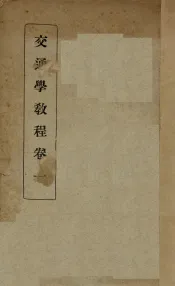 交通學教程卷一